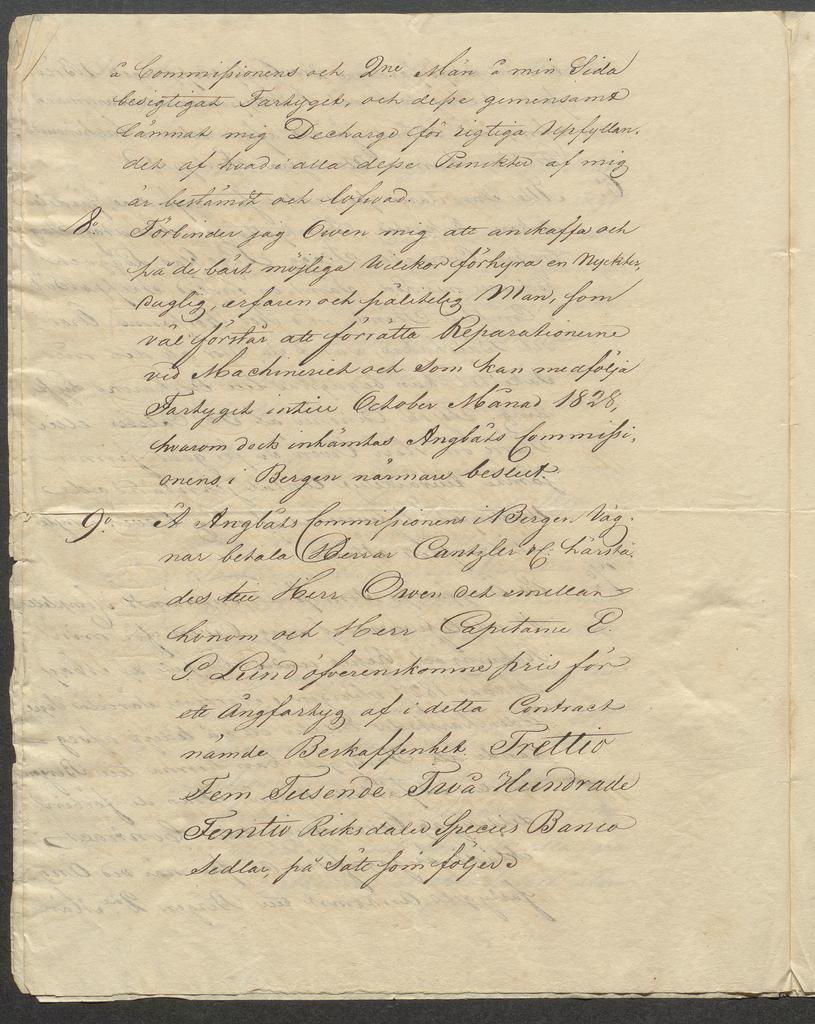 å Commissionens och 2ne Män å min Sida
besigtigat Fartyget, och desse gemensamt
lämnat mig Decharge för rigtiga Upfyllan,
det af hvad i alla desse Punckter af mig
är bestämdt och lofvad.
8o. Förbinder jag Owen mig att anskaffa och
på de bäst möjliga Wilckor förhyra en Nyckter,
duglig, erfaren och pålitelig Man, som
väl förstår att förrätta Reparationerne
vid Machineriet och som kan medfölja
Fartyget intill October Månad 1828,
hvarom dock inhämtas Angbåts Commissi,
onens i Bergen närmare beslut.
9o. Å Angbåts Commissionens i Bergen Väg,
nar betala Herrar Cantzler &C: härstä,
des till Herr Owen det emellan
honom och Herr Capitaine E.
G. Lund öfverenskomne pris för
ett Ångfartyg af i detta Contract
nämde Beskaffenhet Trettio
Fem Tusende Två Hundrade
Femtio Riksdaler Species Banco
Sedlar, på sätt som följer: